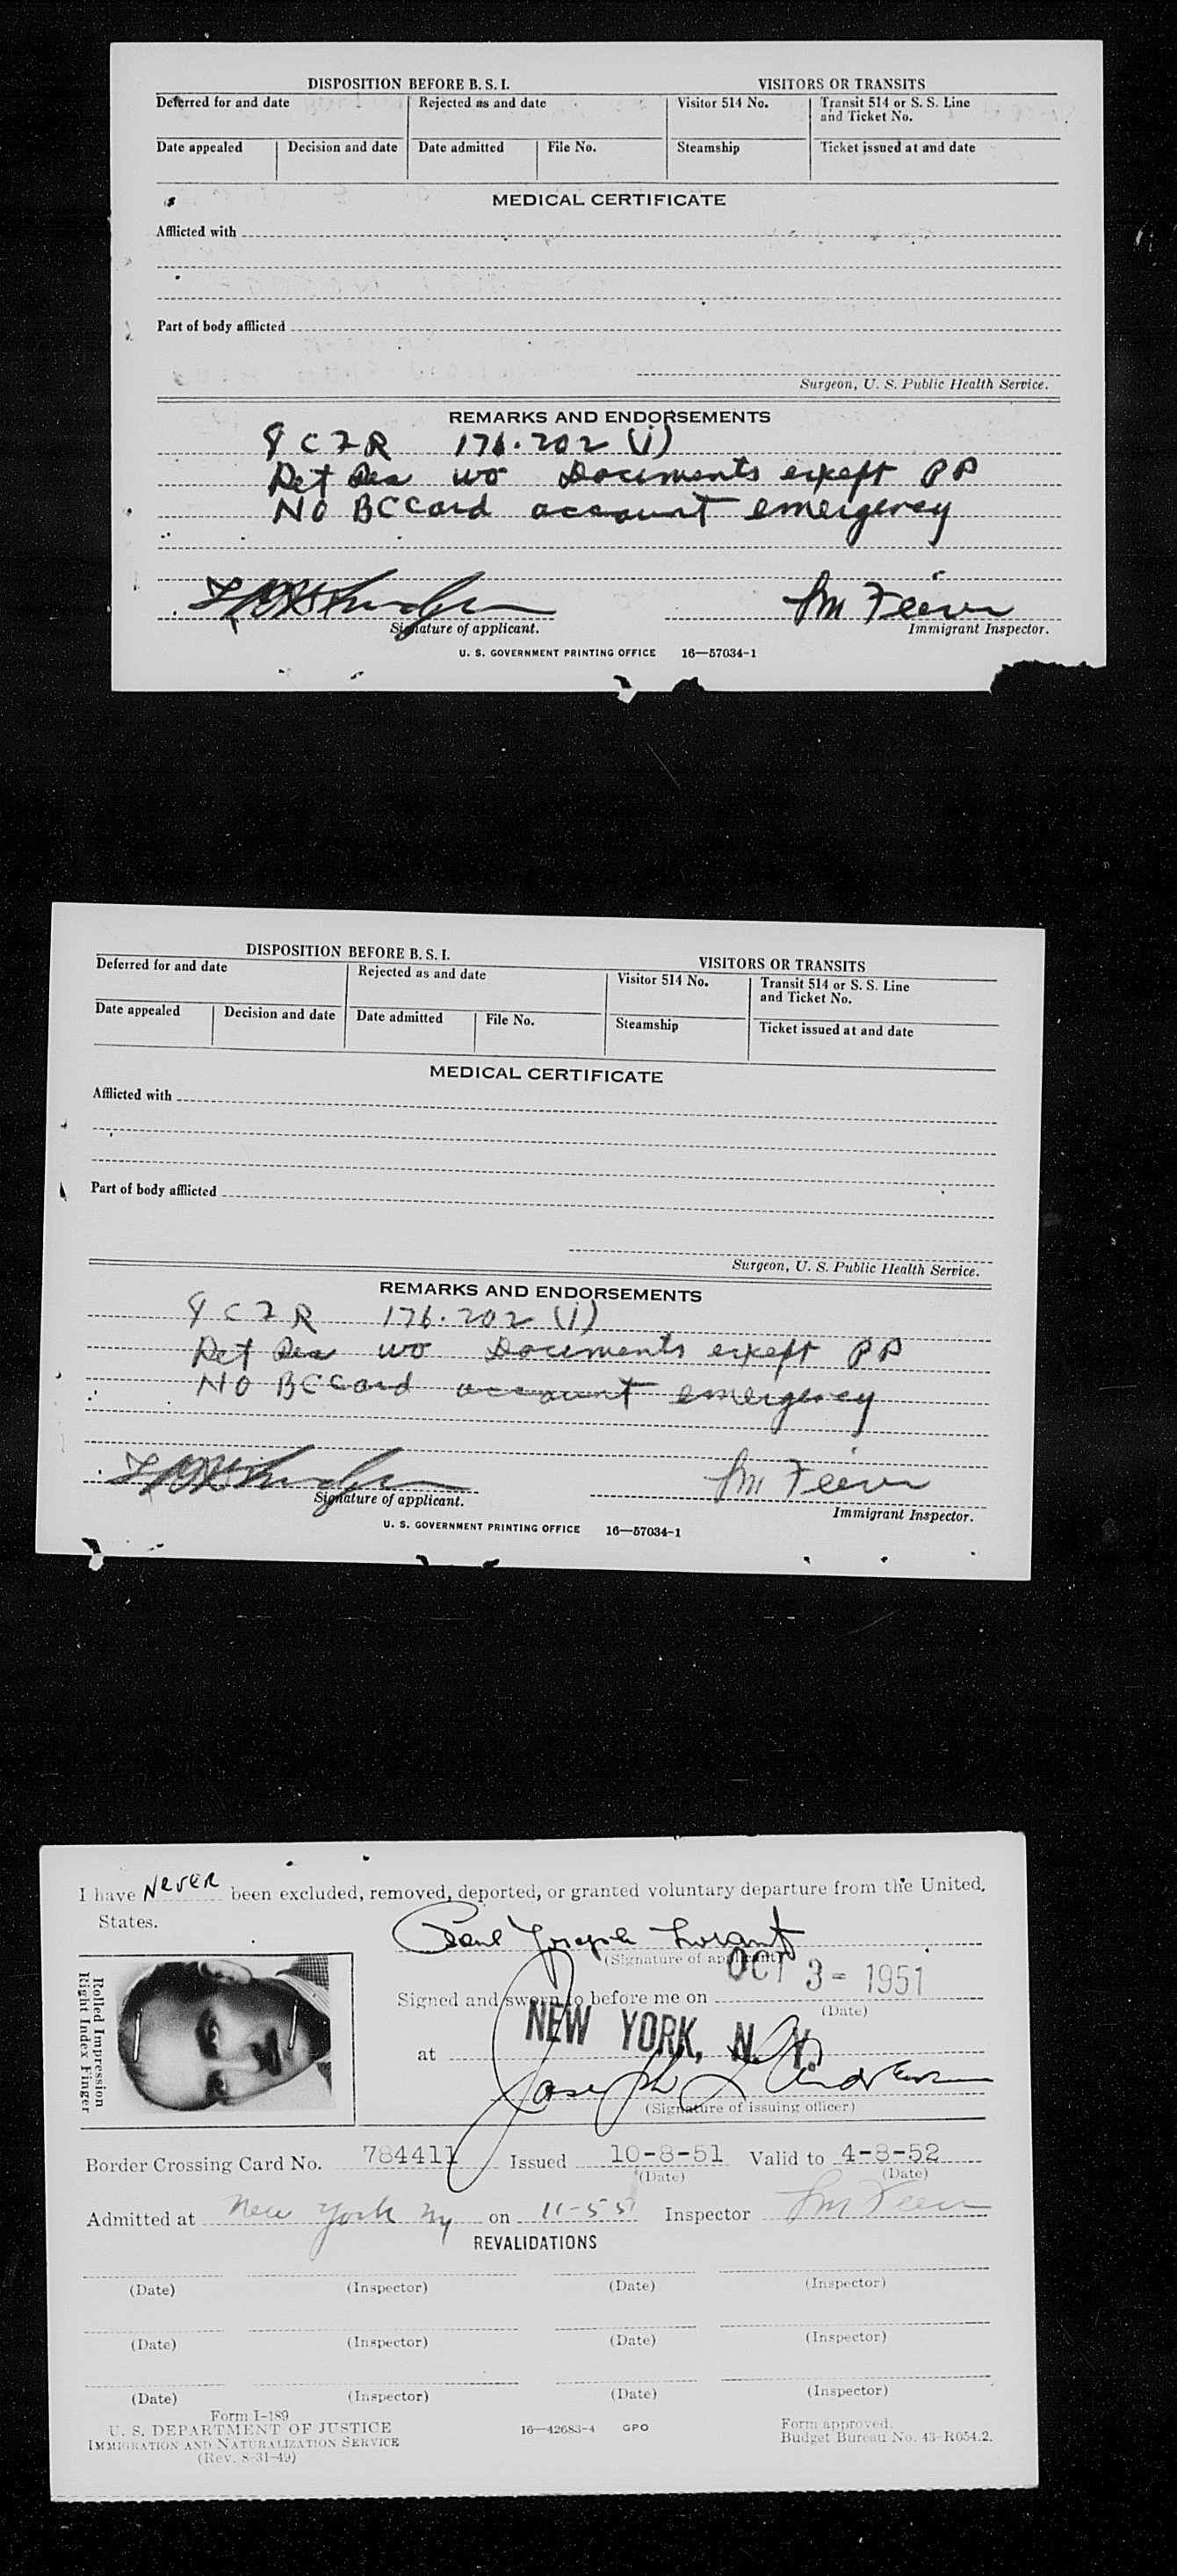 DISPOSITION BEFORE B. S. I. VISITORS OR TRANSITS
Deferred for and date Rejected as and date Visitor 514 No. Transit 514 or S. S. Line
and Ticket No.
Date appealed Decision and date Date admitted File No. Steamship Ticket issued at and date
MEDICAL CERTIFICATE
Afflicted with
Part of body afflicted
Surgeon, U. S. Public Health Service.
REMARKS AND ENDORSEMENTS
8 CFR 176.202 (i)
Ret Res wo Documents except PP
No BC Card account emergency
Signature of applicant. Immigrant Inspector.
U. S. GOVERNMENT PRINTING OFFICE 16—57034-1
DISPOSITION BEFORE B. S. I. VISITORS OR TRANSITS
Deferred for and date Rejected as and date Visitor 514 No. Transit 514 or S. S. Line
and Ticket No.
Date appealed Decision and date Date admitted File No. Steamship Ticket issued at and date
MEDICAL CERTIFICATE
Afflicted with
Part of body afflicted
Surgeon, U. S. Public Health Service.
REMARKS AND ENDORSEMENTS
8 CFR 176.202 (i)
Ret Res wo Documents except PP
No BC Card account emergency
Signature of applicant. Immigrant Inspector.
U. S. GOVERNMENT PRINTING OFFICE 16—57034-1
I have NEVER been excluded, removed, deported, or granted voluntary departure from the United
States.
Paul Joseph Lorant
(Signature of applicant)
OCT 3 - 1951
Signed and sworn to before me on
(Date)
NEW YORK, N. Y.
at
Joseph
(Signature of issuing officer)
Rolled Impression
Right Index Finger
Border Crossing Card No. 784411 Issued 10-8-51 Valid to 4-8-52
(Date) (Date)
Admitted at New York Ny on 11-5-51 Inspector
REVALIDATIONS
(Date) (Inspector) (Date) (Inspector)
(Date) (Inspector) (Date) (Inspector)
(Date) (Inspector) (Date) (Inspector)
Form I-189
U. S. DEPARTMENT OF JUSTICE
IMMIGRATION AND NATURALIZATION SERVICE
(Rev. 8-31-49)
16—42683-4 GPO
Form approved.
Budget Bureau No. 43-R054.2.